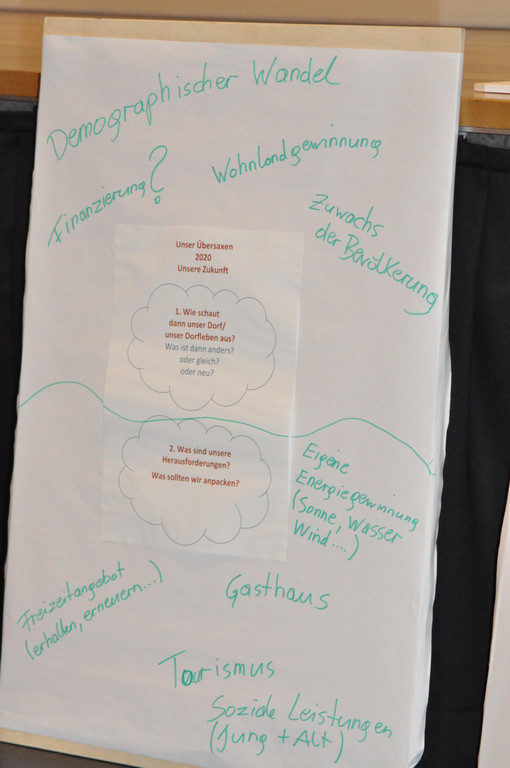 Demographischer Wandel
Wohnlandgewinnung
Finanzierung?
Zuwachs
der Bevölkerung
Unser Übersaxen
2020
Unsere Zukunft
1. Wie schaut
dann unser Dorf/
unser Dorfleben aus?
Was ist dann anders?
oder gleich?
oder neu?
2. Was sind unsere
Herausforderungen?
Was sollten wir anpacken?
Eigene
Energiegewinnung
(Sonne, Wasser
Wind....)
Freizeitangebot
(erhalten, erneuern...)
Gasthaus
Tourismus
Soziale Leistungen
(Jung + Alt)